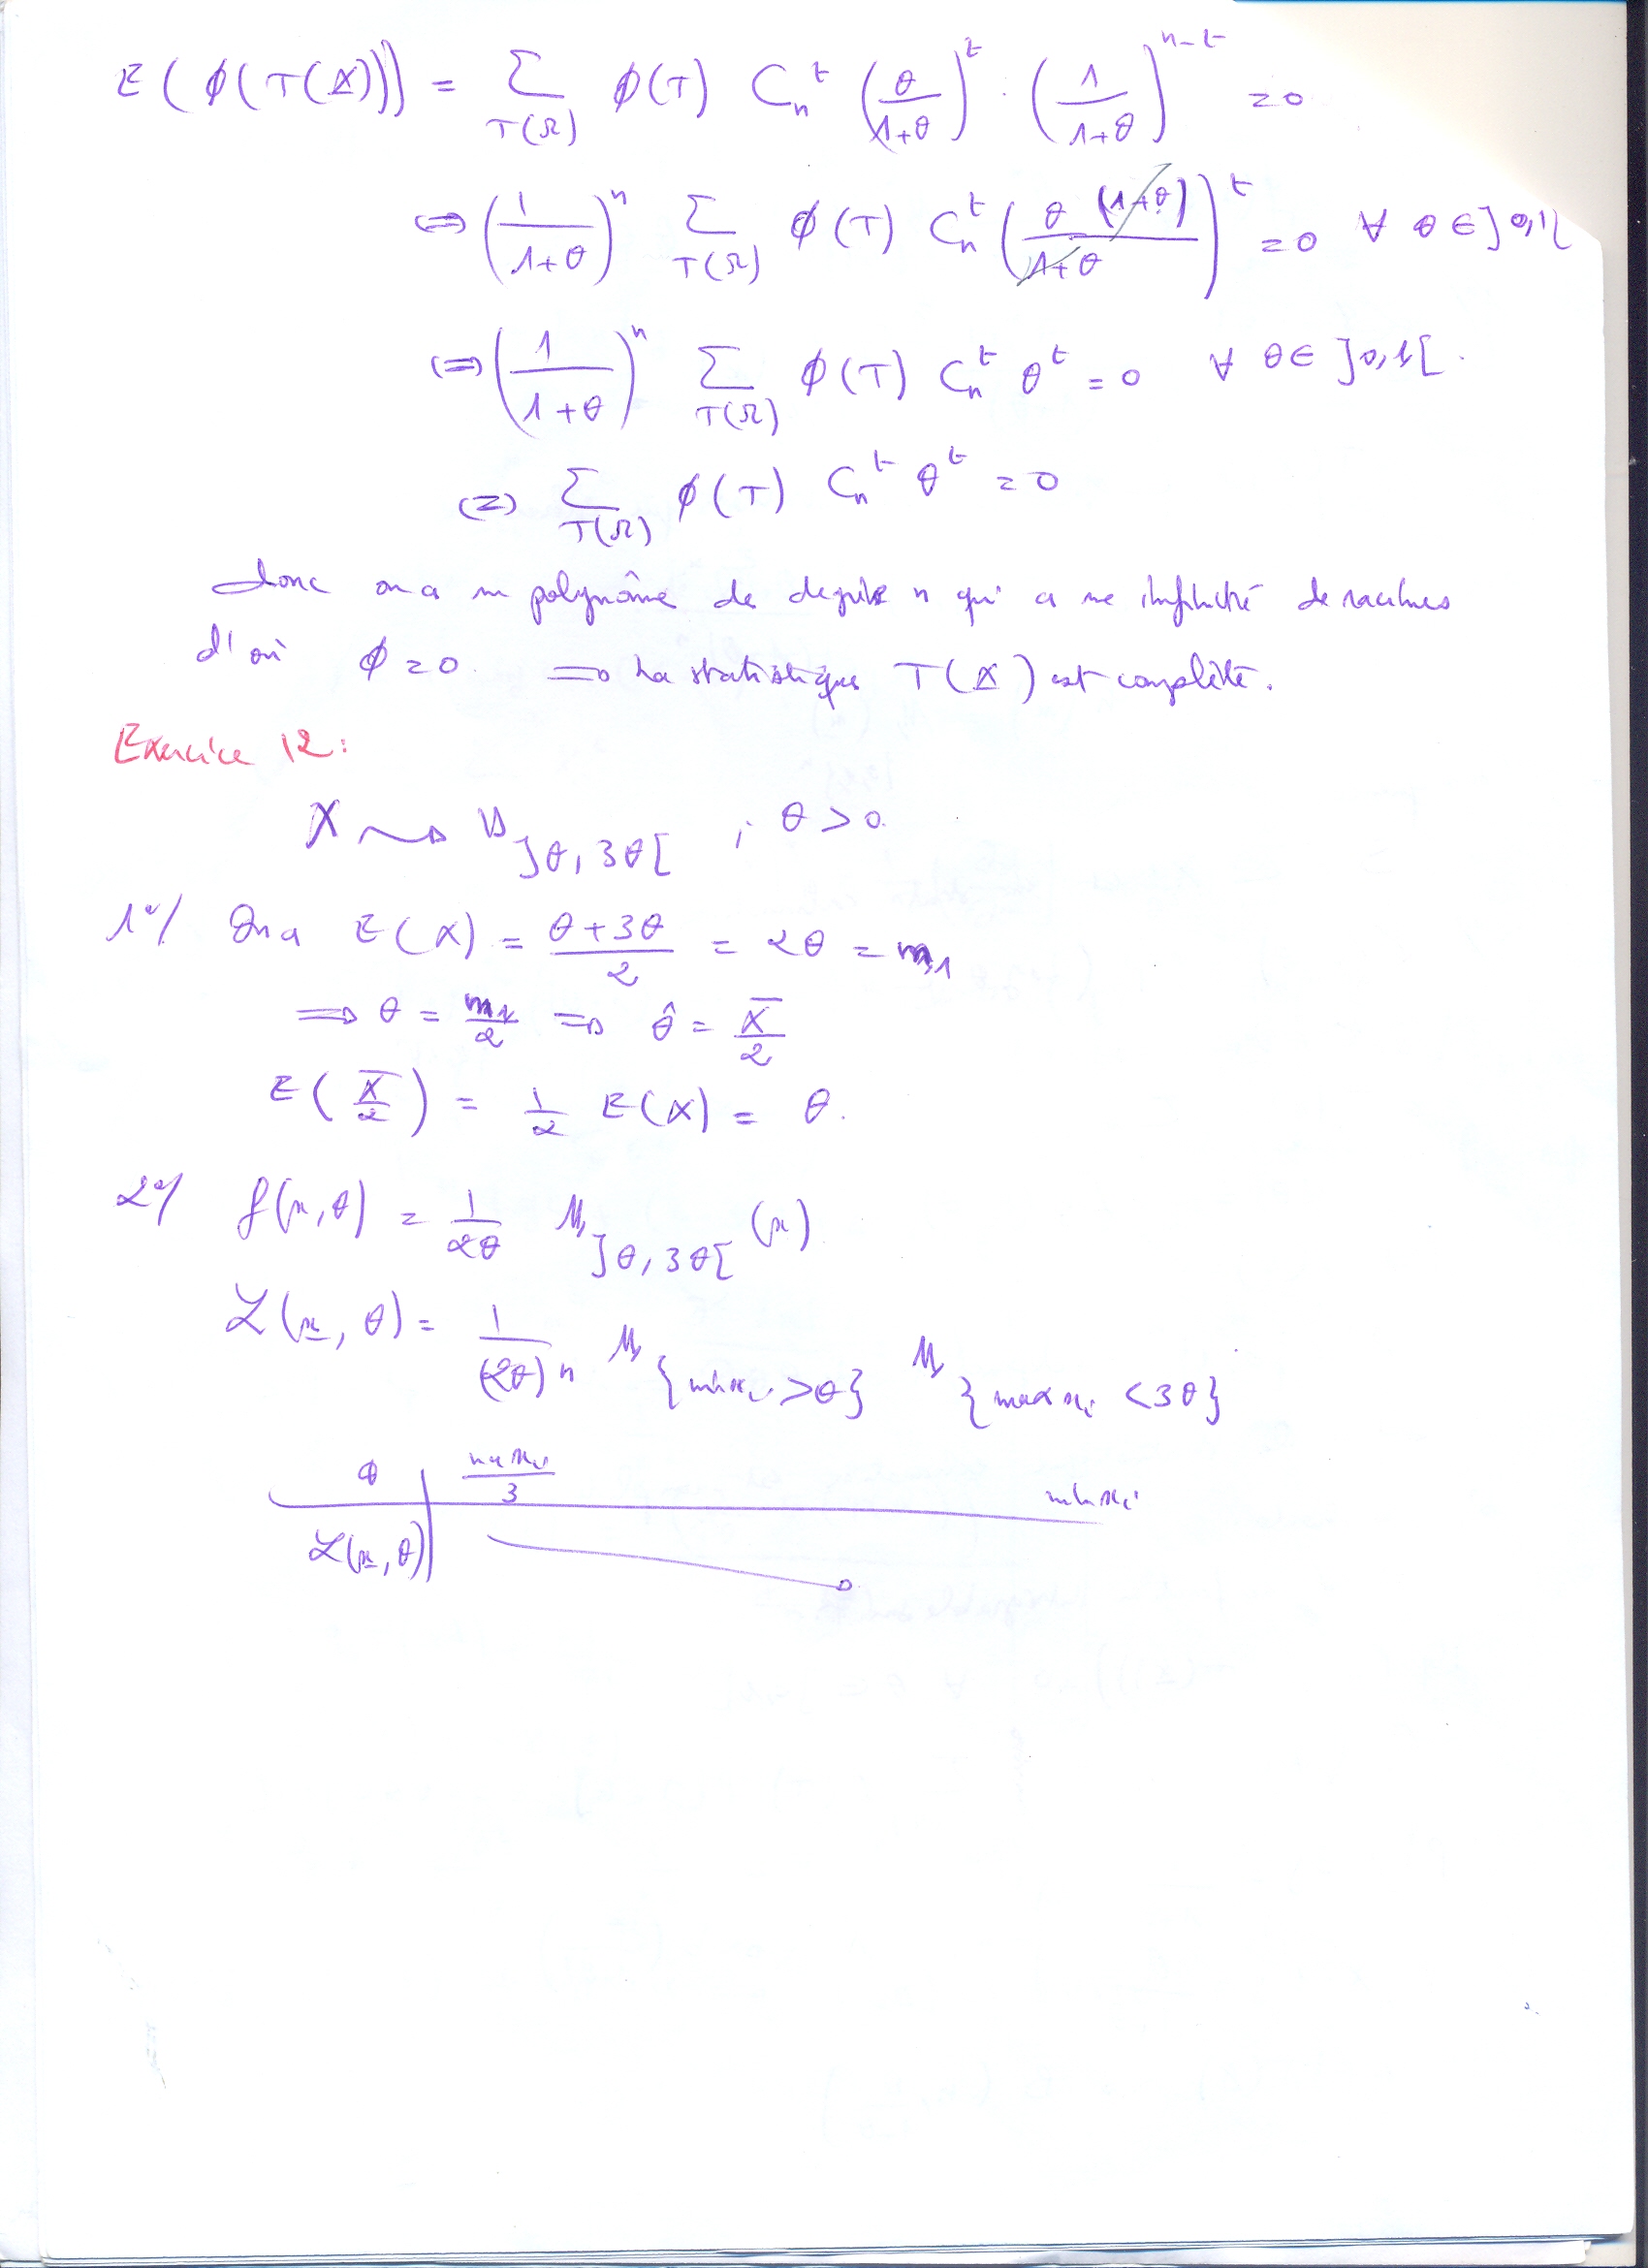 E(ϕ(T(X))) = Σ_{T(Ω)} ϕ(T) C_n^t (θ/(1+θ))^t . (1/(1+θ))^{n-t} = 0
⇔ (1/(1+θ))^n Σ_{T(Ω)} ϕ(T) C_n^t (θ (1+θ)/(1+θ))^t = 0 ∀ θ ∈ ]0,1[
⇔ (1/(1+θ))^n Σ_{T(Ω)} ϕ(T) C_n^t θ^t = 0 ∀ θ ∈ ]0,1[.
⇔ Σ_{T(Ω)} ϕ(T) C_n^t θ^t = 0
donc on a un polynôme de degré n qui a une infinité de racines
d'où ϕ = 0. ⇒ La statistique T(X) est complète.
Exercice 12:
X ⇝ U_{]θ, 3θ[} ; θ > 0.
1°/ On a E(X) = (θ+3θ)/2 = 2θ = m_1
⇒ θ = m_1/2 ⇒ θ̂ = X̄/2
E(X̄/2) = 1/2 E(X) = θ.
2°/ f(x,θ) = 1/(2θ) 𝟙_{]θ, 3θ[} (x)
ℒ(x, θ) = 1/(2θ)^n 𝟙_{min x_i > θ} 𝟙_{max x_i < 3θ}
θ | max x_i/3 min x_i
ℒ(x, θ)